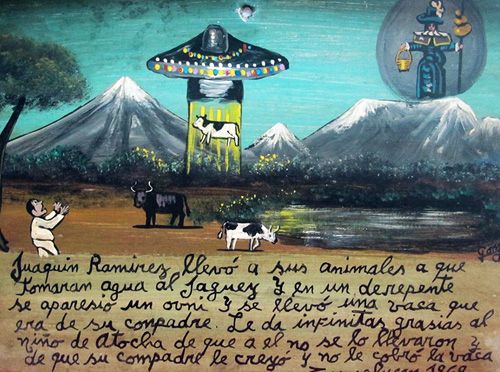 Juaquin Ramirez llevó a sus animales a que
tomaran agua al Jaguez Y en un derepente
se aparesió un ovni Y se llevó una vaca que
era de su conpadre. Le da infinitas grasias al
niño de Atocha de que a el no se lo llevaron y
de que su compadre le creyó y no le cobró la vaca
1969